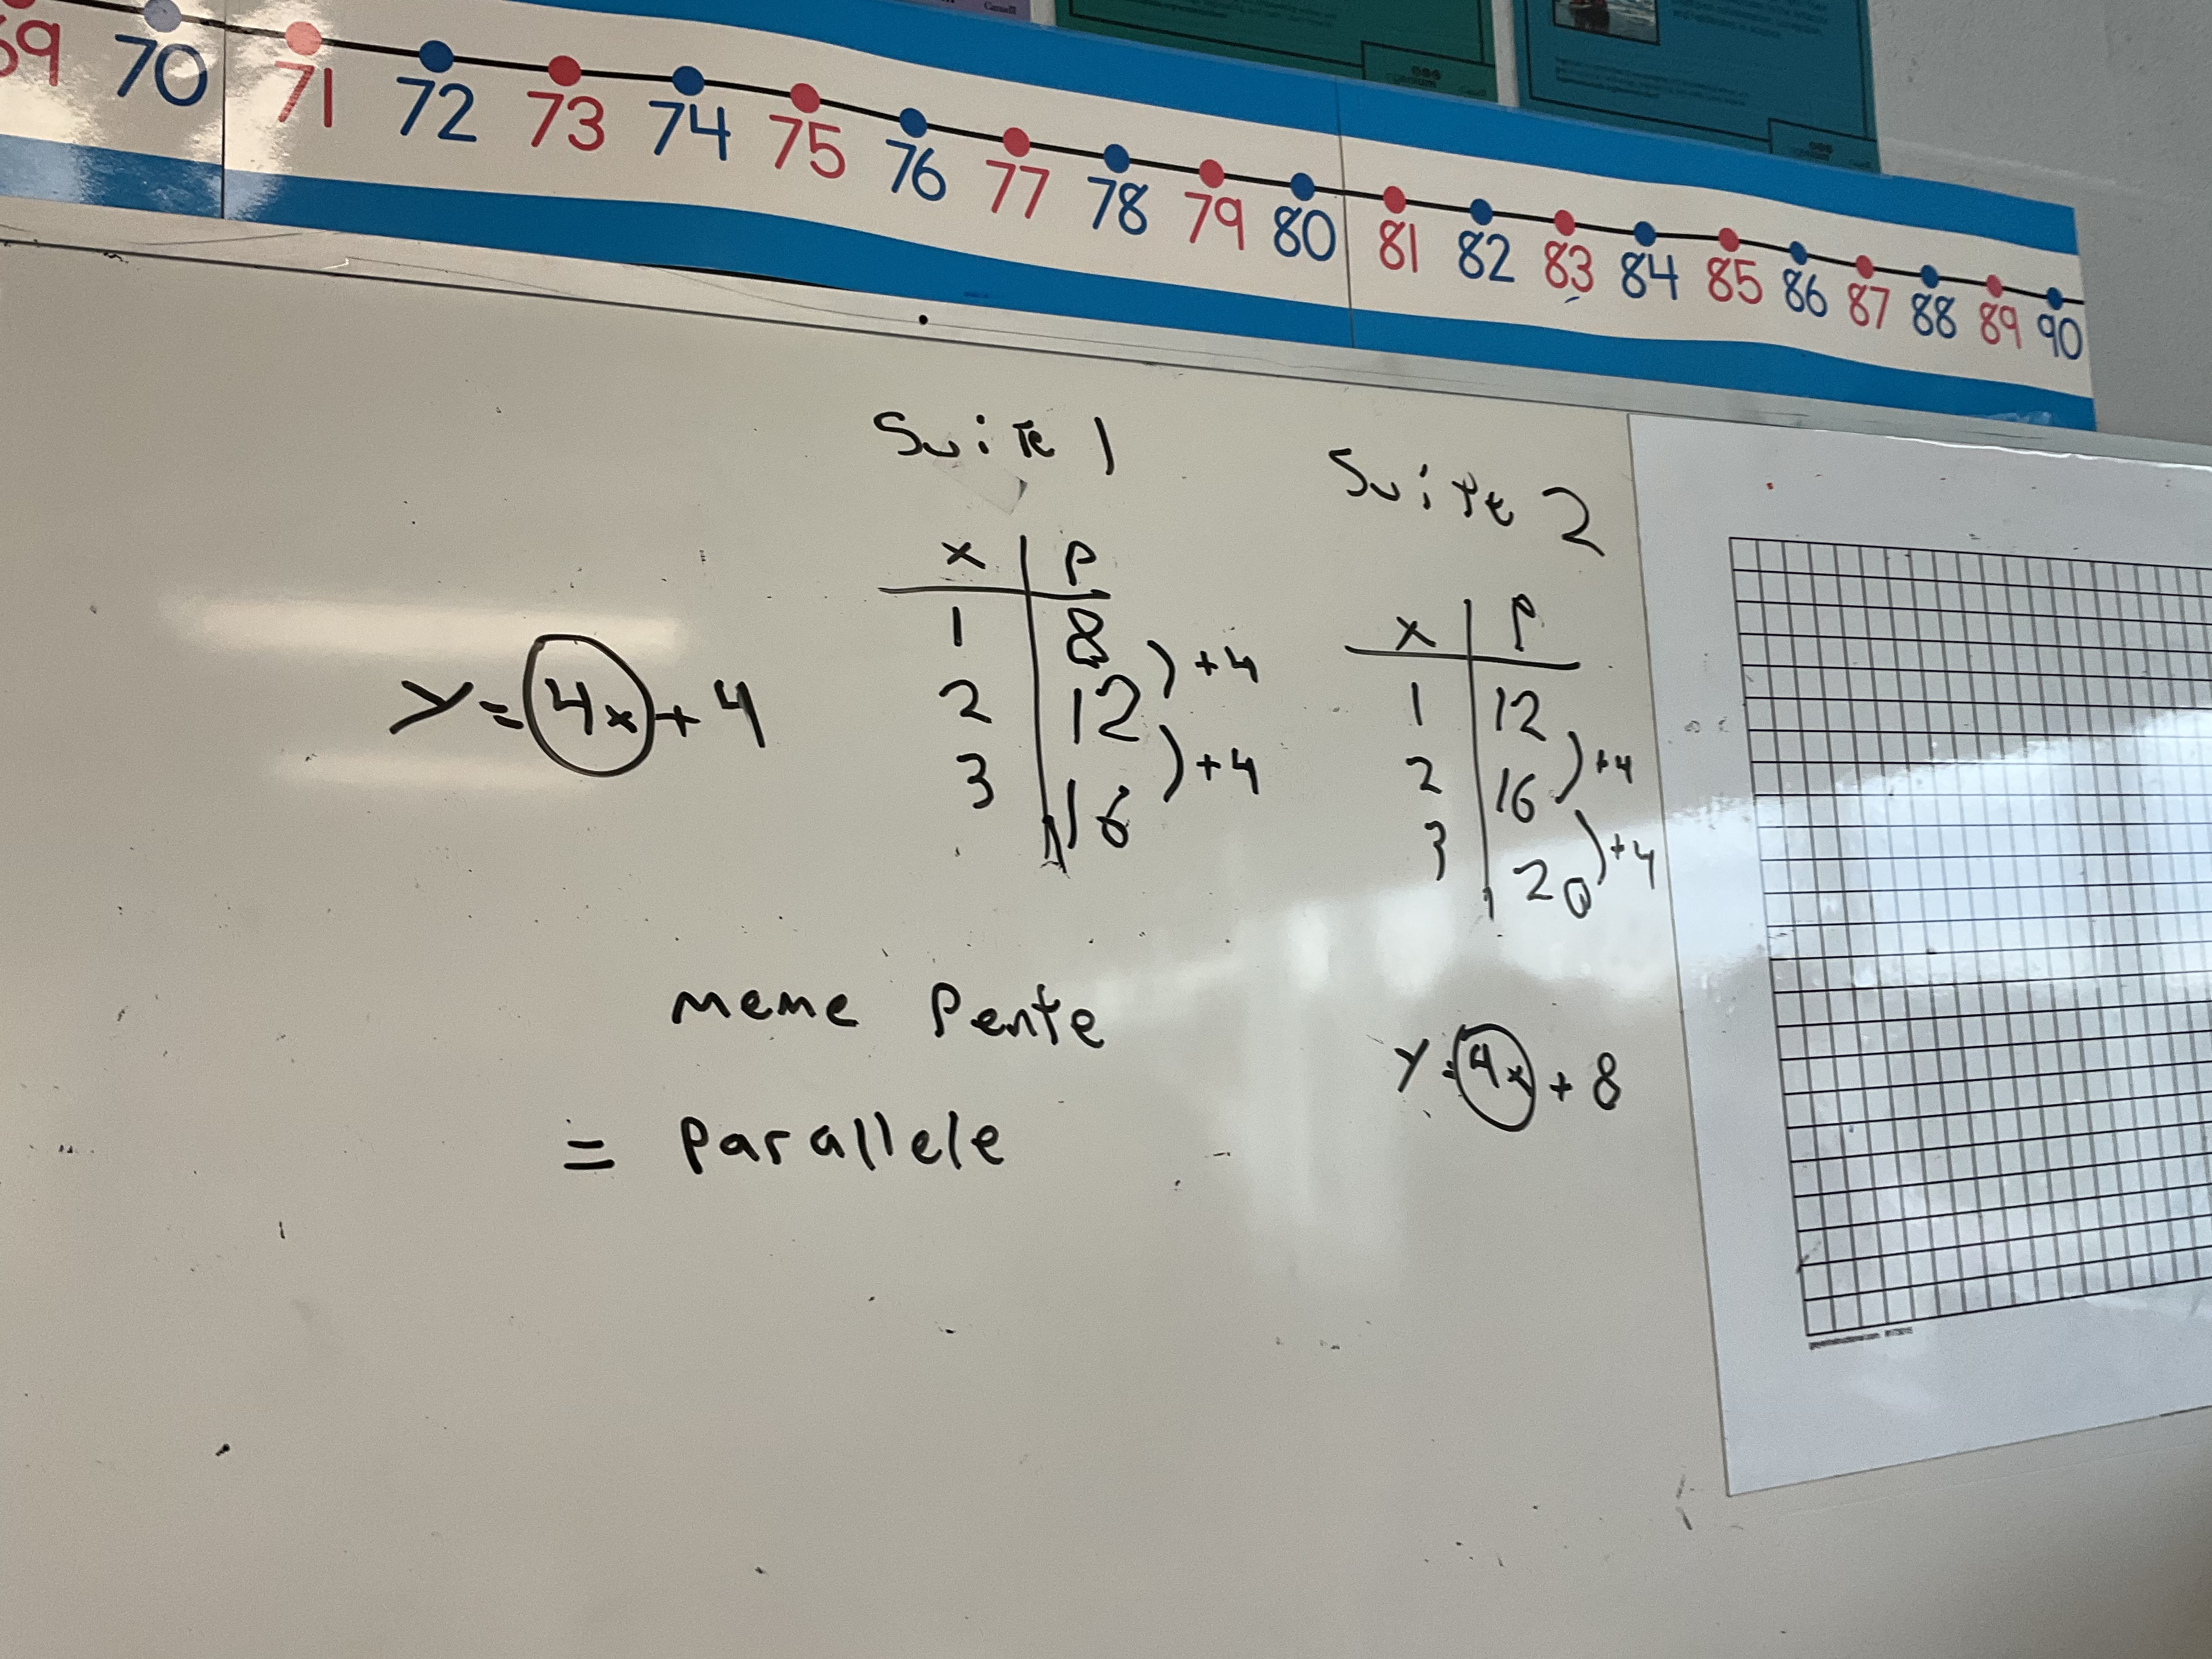 69 70 71 72 73 74 75 76 77 78 79 80 81 82 83 84 85 86 87 88 89 90
Suite 1
x P
1 8
2 12
3 16
+4
+4
y = 4x + 4
Suite 2
x P
1 12
2 16
3 20
+4
+4
y = 4x + 8
meme Pente
= Parallele